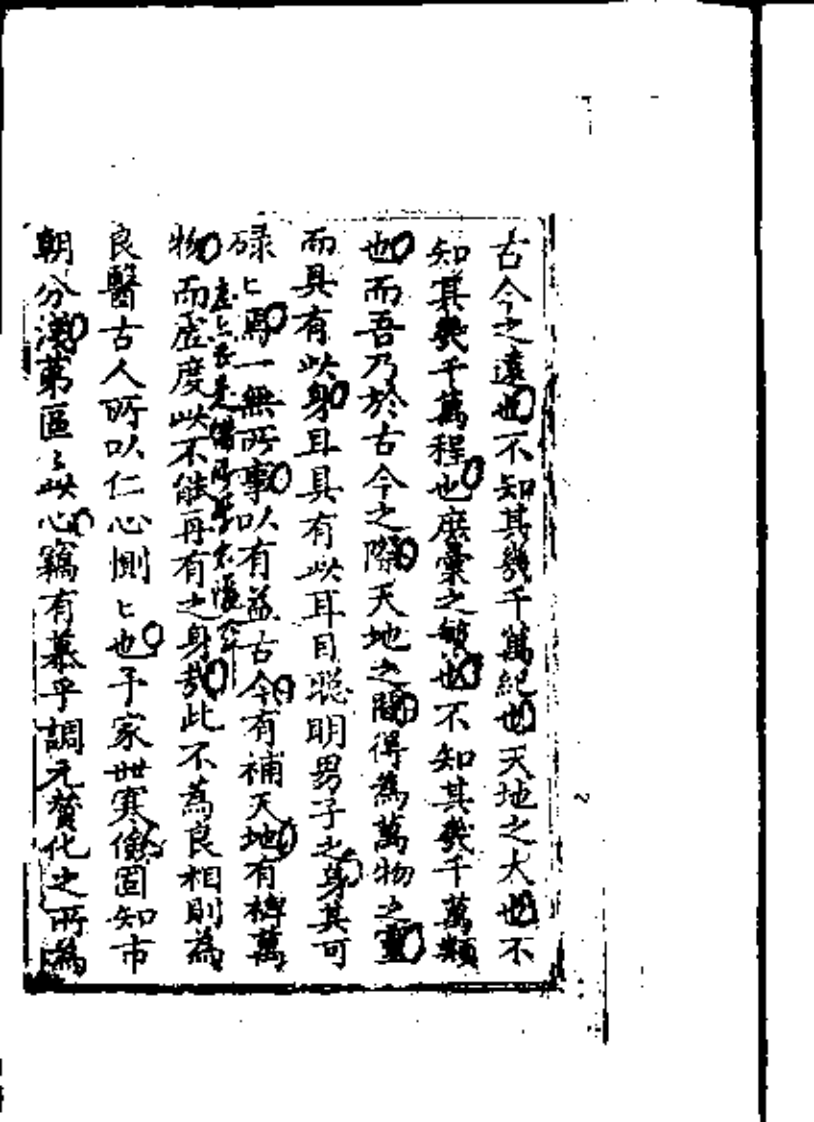 古今之遠也不知其幾千萬紀也天地之大也不
知其幾千萬程也庶彙之繁也不知其幾千萬類
也而吾乃於古今之際天地之間得為萬物之靈
而具有此身耳具有此耳目聰明男子之身其可
碌〻焉一無所事以有益古今有補天地有裨萬
物而虛度此不能再有之身哉此不為良相則為
良醫古人所以仁心惻〻也予家世寒儉固知市
朝分淺第區〻此心竊有慕乎調元贊化之所為